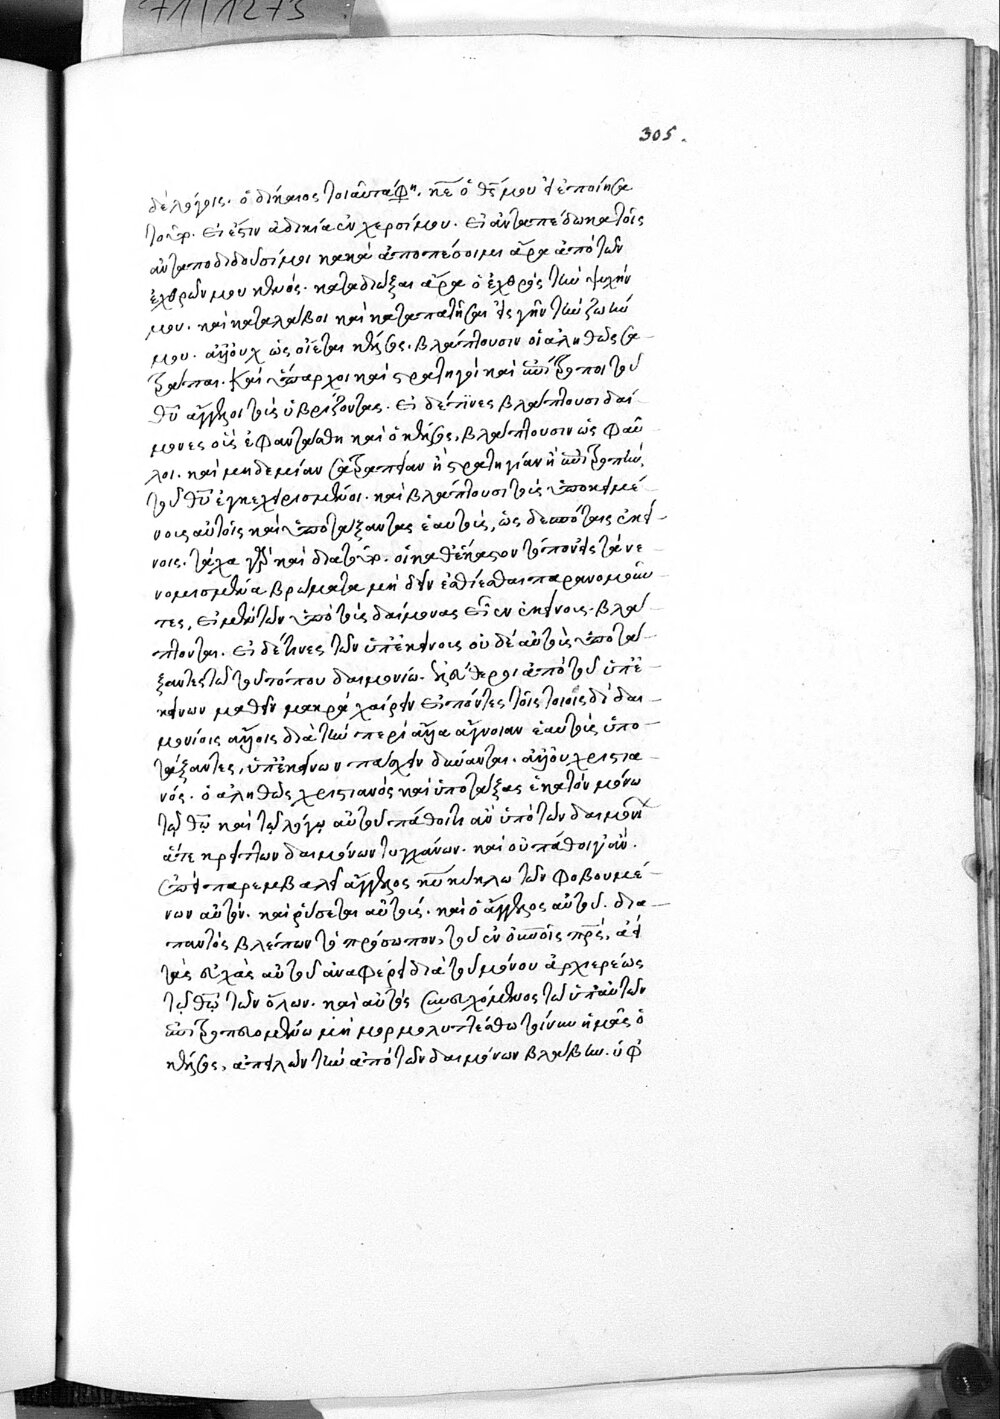 71/1273
305.
δὲ λόγοις. ὁ δίκαιος τοιαῦτα φη. κε ὁ θς μου εἰ ἐποίησα
τοῦτο. εἰ ἔστιν ἀδικία ἐν χερσί μου. εἰ ἀνταπέδωκα τοῖς
ἀνταποδιδοῦσί μοι κακὰ ἀποπέσοιμι ἄρα ἀπὸ τῶν
ἐχθρῶν μου κενός. καταδιώξαι ἄρα ὁ ἐχθρός τὴν ψυχήν
μου. καὶ καταλάβοι καὶ καταπατήσαι εἰς γῆν τὴν ζωήν
μου. ἀλλ' οὐχ ὡς οἴεται κέλσος. βλάπτουσιν οἱ ἀληθῶς σα-
τράπαι. καὶ ὕπαρχοι καὶ στρατηγοὶ καὶ ἐπίτροποι τοῦ
θυ ἄγγελοι τοὺς ὑβρίζοντας. εἰ δέ τινες βλάπτουσι δαί-
μονες οὓς ἐφαντάσθη καὶ ὁ κέλσος, βλάπτουσιν ὡς φαῦ-
λοι. καὶ μηδεμίαν σατραπείαν ἢ στρατηγίαν ἢ ἐπιτροπὴν
τοῦ θυ ἐγκεχειρισμένοι. καὶ βλάπτουσι τοὺς ὑποκειμέ-
νους αὐτοῖς καὶ ὑποτάξαντας ἑαυτοὺς, ὡς δεσπόταις ἐκεί-
νοις. τάχα γὰρ καὶ διὰ τοῦτο. οἱ καθ' ἕκαστον τόπον εἰς τὰ νε-
νομισμένα βρώματα μὴ δεῖν ἐσθίεσθαι παρανομοῦν-
τες, εἰ μὲν τῶν ὑπὸ τοὺς δαίμονας εἶεν ἐκείνους. βλά-
πτονται. εἰ δέ τινες τῶν ὑπ' ἐκείνοις οὐδὲ αὑτοὺς ὑποτά-
ξαντες τῷ τοῦ τόπου δαιμονίῳ. ἐλεύθεροι ἀπὸ τοῦ ὑπ' ἐ-
κείνων παθεῖν μακρὰ χαίρειν εἰπόντες τοῖς τοιοῖσδε δαι-
μονίοις ἄλλοις διὰ τὴν περὶ ἄλλα ἄγνοιαν ἑαυτοὺς ὑπο-
τάξαντες, ὑπ' ἐκείνων παθεῖν δύνανται. ἀλλ' οὐ χριστια-
νός. ὁ ἀληθῶς χριστιανὸς καὶ ὑποτάξας ἑαυτὸν μόνῳ
τῷ θῷ καὶ τῷ λόγῳ αὐτοῦ πάθοι τι ἂν ὑπὸ τῶν δαιμονί
ἅτε κρείττων δαιμόνων τυγχάνων. καὶ οὐ πάθοι γ' ἂν.
ἐπεὶ παρεμβαλεῖ ἄγγελος κυ κύκλῳ τῶν φοβουμέ-
νων αὐτόν. καὶ ῥύσεται αὐτούς. καὶ ὁ ἄγγελος αὐτοῦ. δια-
παντὸς βλέπων τὸ πρόσωπον, τοῦ ἐν οὐνοῖς πρς, ἀεὶ
τὰς εὐχὰς αὐτοῦ ἀναφέρει διὰ τοῦ μόνου ἀρχιερέως
τῷ θῷ τῶν ὅλων. καὶ αὐτὸς συνευχόμενος τῷ ὑπ' αὐτῶν
ἐπιτροπευομένῳ μὴ μορμολυττέσθω τοίνυν ἡμᾶς ὁ
κέλσος, ἀπειλῶν τὴν ἀπὸ τῶν δαιμόνων βλάβην. ὑφ